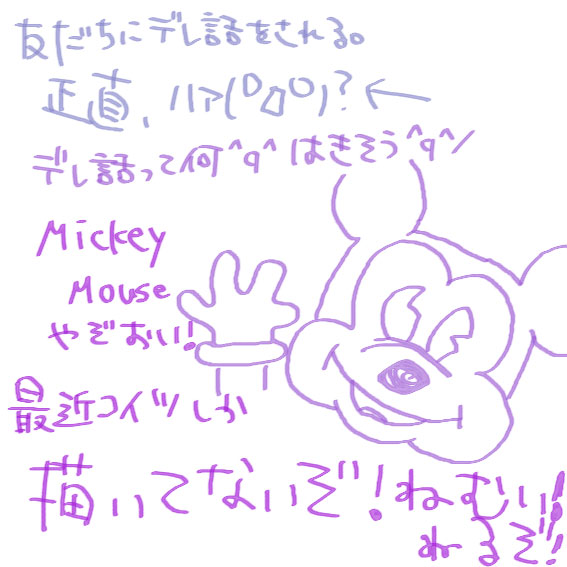 友だちにデレ話をされる。
正直、ハァ(ﾟДﾟ)?←
デレ話って何^q^はきそう^q^ノ
Mickey
Mouse
やぞおい!
最近コイツしか
描いてないぞ!ねむい!
ねるぞ!